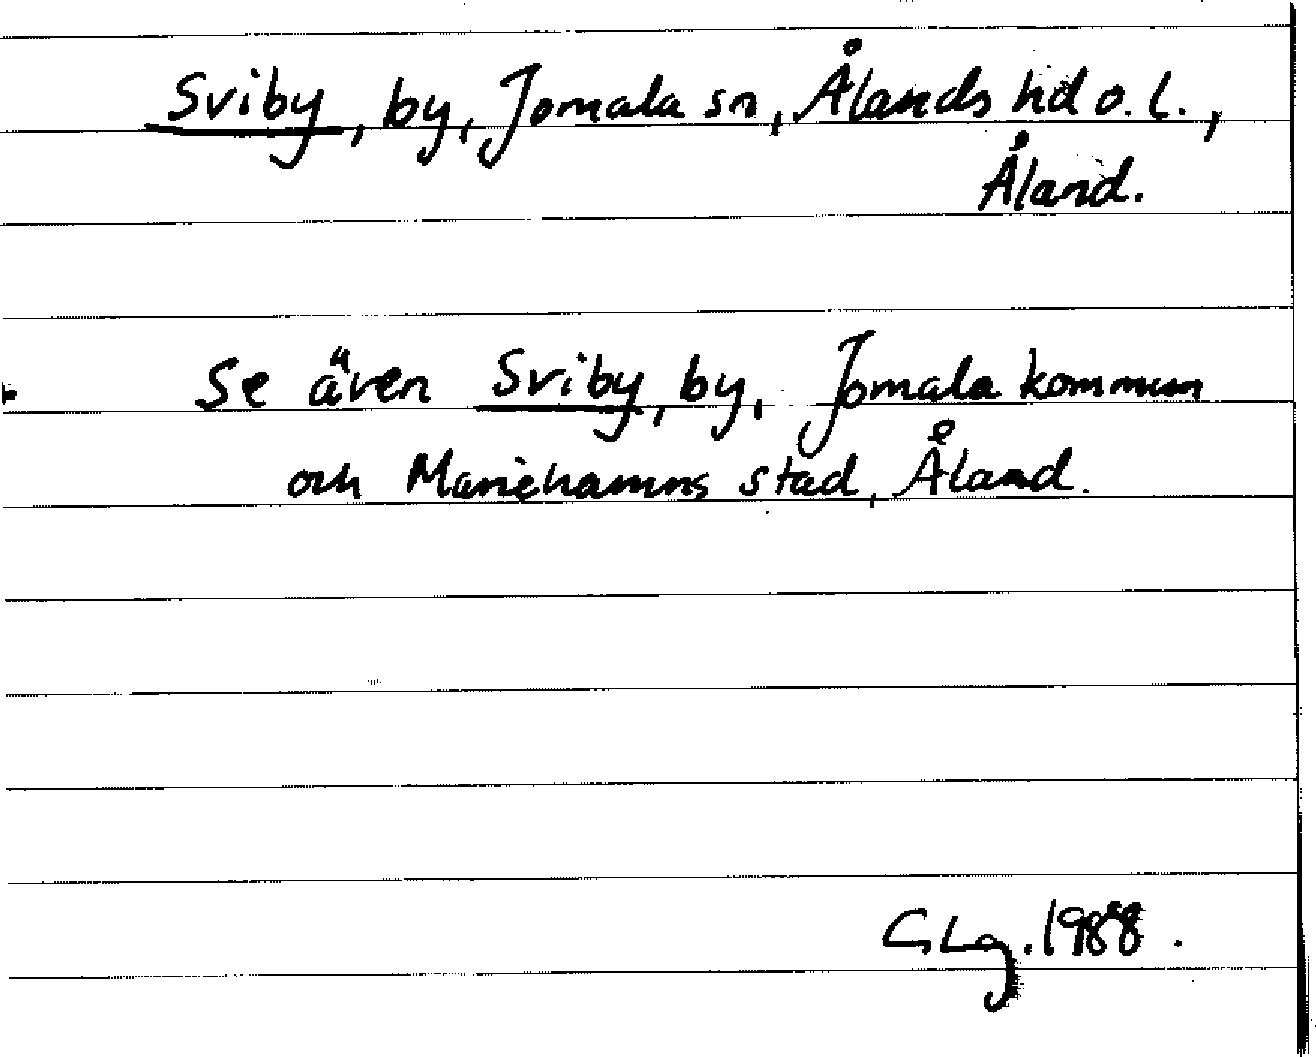 Sviby, by, Jomala sn, Ålands hd o. l.,
Åland.
Se även Sviby, by, Jomala kommun
och Mariehamns stad, Åland.
GLg. 1988.